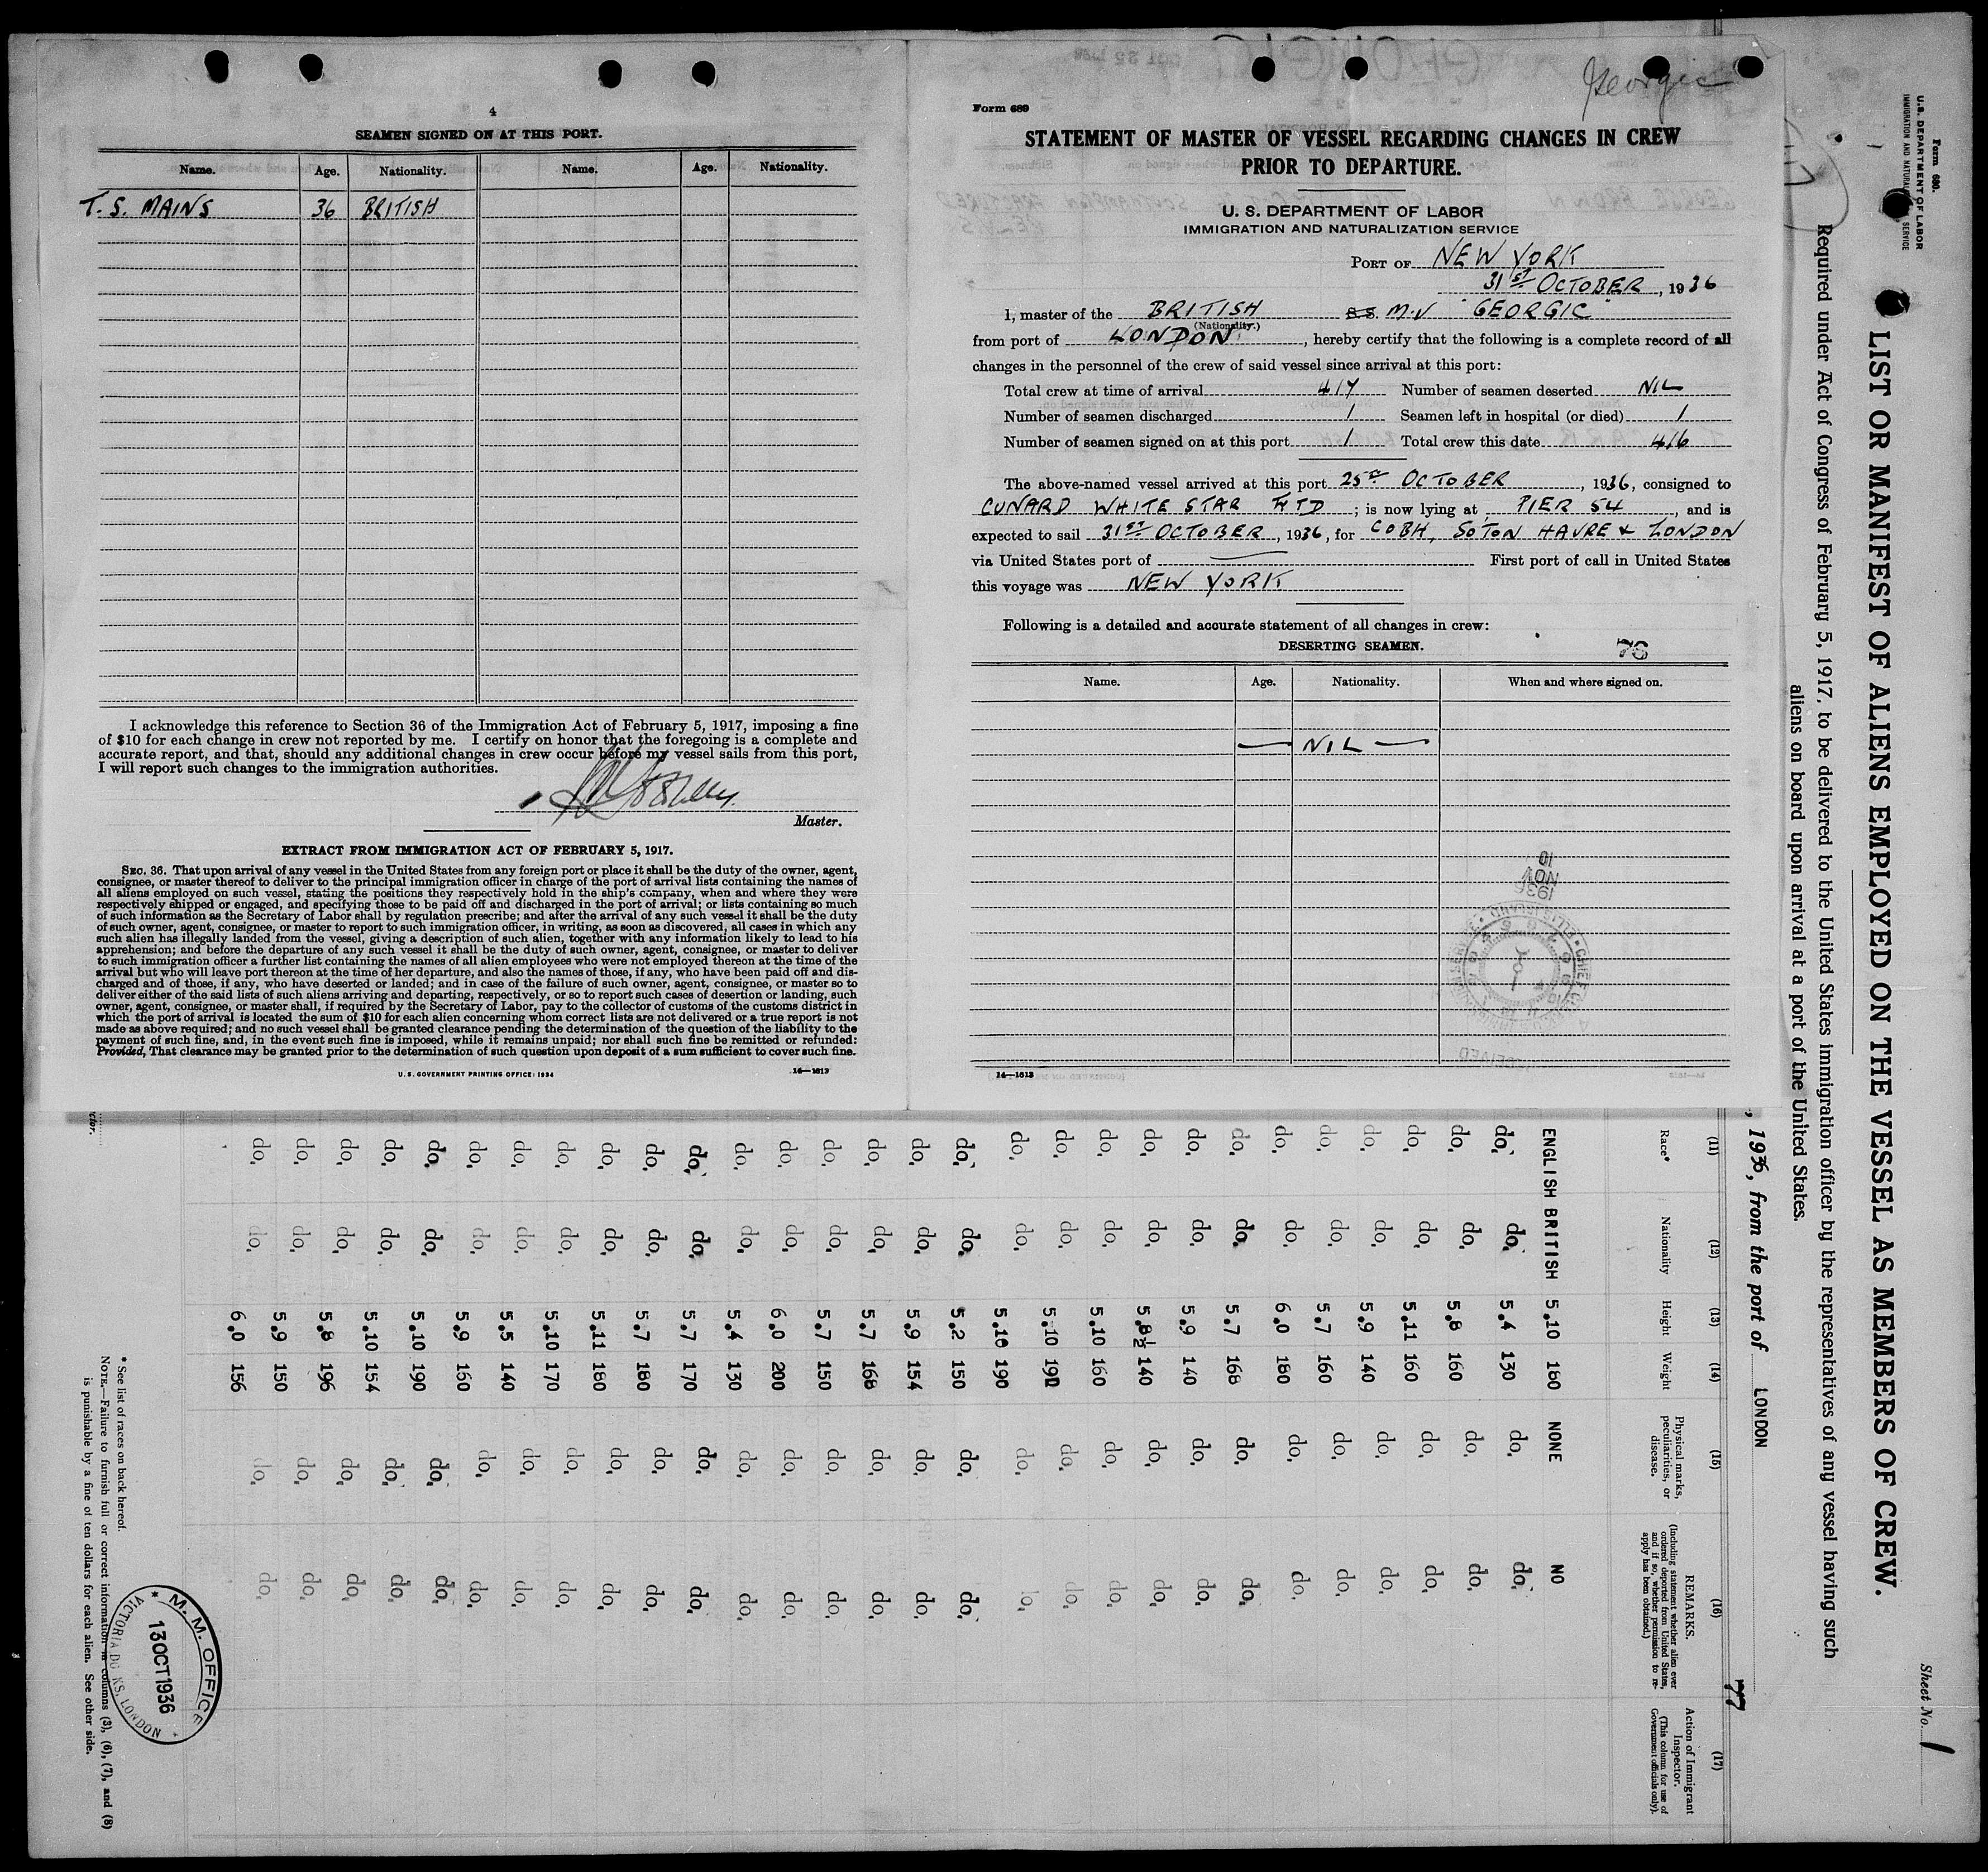 4
SEAMEN SIGNED ON AT THIS PORT.
Name. Age. Nationality. Name. Age. Nationality.
T. S. MAINS 36 BRITISH
I acknowledge this reference to Section 36 of the Immigration Act of February 5, 1917, imposing a fine
of $10 for each change in crew not reported by me. I certify on honor that the foregoing is a complete and
accurate report, and that, should any additional changes in crew occur before my vessel sails from this port,
I will report such changes to the immigration authorities.
Master.
EXTRACT FROM IMMIGRATION ACT OF FEBRUARY 5, 1917.
SEC. 36. That upon arrival of any vessel in the United States from any foreign port or place it shall be the duty of the owner, agent,
consignee, or master thereof to deliver to the principal immigration officer in charge of the port of arrival lists containing the names of
all aliens employed on such vessel, stating the positions they respectively hold in the ship's company, when and where they were
respectively shipped or engaged, and specifying those to be paid off and discharged in the port of arrival; or lists containing so much
of such information as the Secretary of Labor shall by regulation prescribe; and after the arrival of any such vessel it shall be the duty
of such owner, agent, consignee, or master to report to such immigration officer, in writing, as soon as discovered, all cases in which any
such alien has illegally landed from the vessel, giving a description of such alien, together with any information likely to lead to his
apprehension; and before the departure of any such vessel it shall be the duty of such owner, agent, consignee, or master to deliver
to such immigration officer a further list containing the names of all alien employees who were not employed thereon at the time of the
arrival but who will leave port thereon at the time of her departure, and also the names of those, if any, who have been paid off and dis-
charged and of those, if any, who have deserted or landed; and in case of the failure of such owner, agent, consignee, or master so to
deliver either of the said lists of such aliens arriving and departing, respectively, or so to report such cases of desertion or landing, such
owner, agent, consignee, or master shall, if required by the Secretary of Labor, pay to the collector of customs of the customs district in
which the port of arrival is located the sum of $10 for each alien concerning whom correct lists are not delivered or a true report is not
made as above required; and no such vessel shall be granted clearance pending the determination of the question of the liability to the
payment of such fine, and, in the event such fine is imposed, while it remains unpaid; nor shall such fine be remitted or refunded:
Provided, That clearance may be granted prior to the determination of such question upon deposit of a sum sufficient to cover such fine.
U. S. GOVERNMENT PRINTING OFFICE: 1934 14—1613
Georgic
Form 689
STATEMENT OF MASTER OF VESSEL REGARDING CHANGES IN CREW
PRIOR TO DEPARTURE.
U. S. DEPARTMENT OF LABOR
IMMIGRATION AND NATURALIZATION SERVICE
PORT OF NEW YORK
31ST OCTOBER, 1936
I, master of the BRITISH S.S. M.V "GEORGIC"
(Nationality.)
from port of LONDON, hereby certify that the following is a complete record of all
changes in the personnel of the crew of said vessel since arrival at this port:
Total crew at time of arrival 417 Number of seamen deserted NIL
Number of seamen discharged 1 Seamen left in hospital (or died) 1
Number of seamen signed on at this port 1 Total crew this date 416
The above-named vessel arrived at this port 25TH OCTOBER, 1936, consigned to
CUNARD WHITE STAR LTD; is now lying at PIER 54, and is
expected to sail 31ST OCTOBER, 1936, for COBH, SOTON HAVRE & LONDON
via United States port of First port of call in United States
this voyage was NEW YORK
Following is a detailed and accurate statement of all changes in crew:
DESERTING SEAMEN. 76
Name. Age. Nationality. When and where signed on.
NIL
1936
NOV
10
14—1613
Form 680.
U. S. DEPARTMENT OF LABOR
IMMIGRATION AND NATURAL SERVICE
Sheet No. 1
LIST OR MANIFEST OF ALIENS EMPLOYED ON THE VESSEL AS MEMBERS OF CREW.
Required under Act of Congress of February 5, 1917, to be delivered to the United States immigration officer by the representatives of any vessel having such
aliens on board upon arrival at a port of the United States.
, 1936, from the port of LONDON
77
(11) (12) (13) (14) (15) (16) (17)
Race* Nationality Height Weight Physical marks, peculiarities, or disease. REMARKS. (Including statement whether alien ever ordered deported from United States, and if so, whether permission to re-apply has been obtained.) Action of Immigrant Inspector. (This column for use of Government officials only).
ENGLISH BRITISH 5.10 180 NONE NO
do. do. 5.4 130 do. do.
do. do. 5.8 160 do. do.
do. do. 5.11 160 do. do.
do. do. 5.9 140 do. do.
do. do. 5.7 160 do. do.
do. do. 6.0 180 do. do.
do. do. 5.7 168 do. do.
do. do. 5.9 140 do. do.
do. do. 5.8½ 140 do. do.
do. do. 5.10 160 do. do.
do. do. 5.10 190 do. do.
do. do. 5.10 190 do. do.
do. do. 5.2 150 do. do.
do. do. 5.9 154 do. do.
do. do. 5.7 168 do. do.
do. do. 5.7 150 do. do.
do. do. 6.0 200 do. do.
do. do. 5.4 130 do. do.
do. do. 5.7 170 do. do.
do. do. 5.7 180 do. do.
do. do. 5.11 180 do. do.
do. do. 5.10 170 do. do.
do. do. 5.5 140 do. do.
do. do. 5.9 160 do. do.
do. do. 5.10 190 do. do.
do. do. 5.10 154 do. do.
do. do. 5.8 196 do. do.
do. do. 5.9 150 do. do.
do. do. 6.0 156 do. do.
* See list of races on back hereof.
NOTE.—Failure to furnish full or correct information in columns (3), (6), (7), and (8)
is punishable by a fine of ten dollars for each alien. See other side.
M. M. OFFICE
13 OCT 1936
VICTORIA DOCKS, LONDON